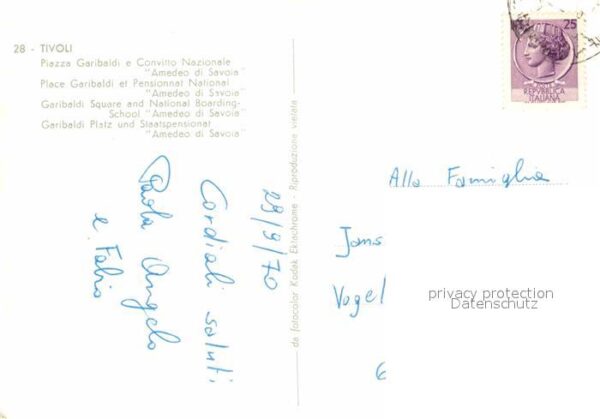 28 - TIVOLI
Piazza Garibaldi e Convitto Nazionale
"Amedeo di Savoia"
Place Garibaldi et Pensionnat National
"Amedeo di Savoia"
Garibaldi Square and National Boarding-
School "Amedeo di Savoia"
Garibaldi Platz und Staatspensionat
"Amedeo di Savoia"
29/9/70
Cordiali saluti
Paola Angelo
e Fabio
da fotocolor Kodak Ektachrome - Riproduzione vietata
25
REPVBBLICA
ITALIANA
Alla Famiglia
Jans
Vogel
privacy protection
Datenschutz